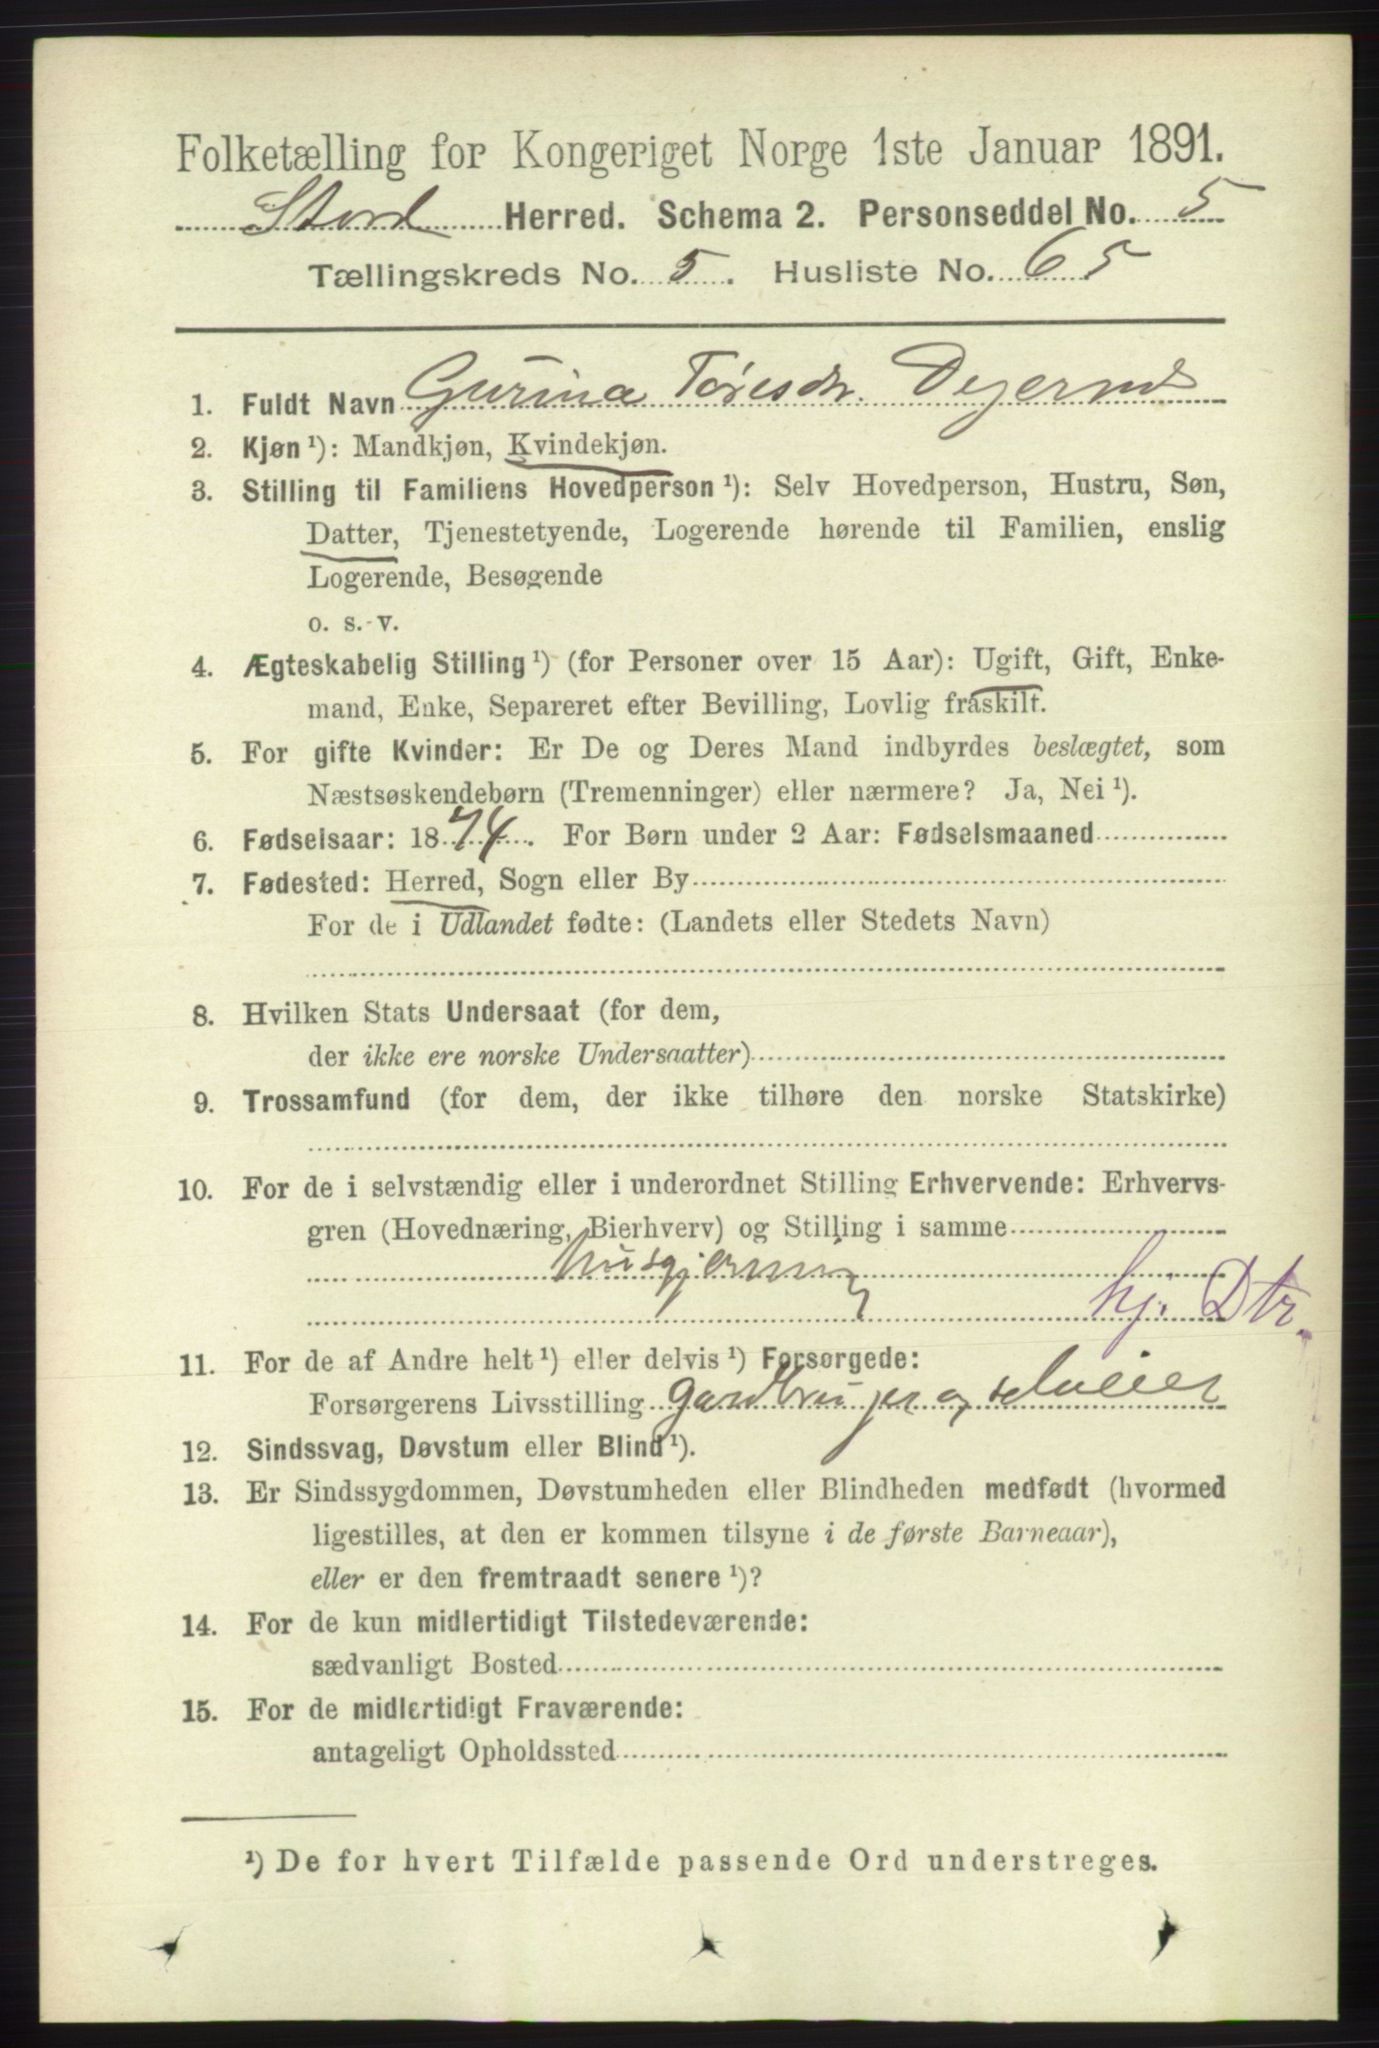 Folketælling for Kongeriget Norge 1ste Januar 1891.
Stord Herred. Schema 2. Personseddel No. 5
Tællingskreds No. 5. Husliste No. 65
1. Fuldt Navn Gurina Toresdr.
2. Kjøn ¹): Mandkjøn, Kvindekjøn.
3. Stilling til Familiens Hovedperson ¹): Selv Hovedperson, Hustru, Søn,
Datter, Tjenestetyende, Logerende hørende til Familien, enslig
Logerende, Besøgende
o. s. v.
4. Ægteskabelig Stilling ¹) (for Personer over 15 Aar): Ugift, Gift, Enke-
mand, Enke, Separeret efter Bevilling, Lovlig fraskilt.
5. For gifte Kvinder: Er De og Deres Mand indbyrdes beslægtet, som
Næstsøskendebørn (Tremenninger) eller nærmere? Ja, Nei ¹).
6. Fødselsaar: 1874. For Børn under 2 Aar: Fødselsmaaned
7. Fødested: Herred, Sogn eller By
For de i Udlandet fødte: (Landets eller Stedets Navn)
8. Hvilken Stats Undersaat (for dem,
der ikke ere norske Undersaatter)
9. Trossamfund (for dem, der ikke tilhøre den norske Statskirke)
10. For de i selvstændig eller i underordnet Stilling Erhvervende: Erhvervs-
gren (Hovednæring, Bierhverv) og Stilling i samme
husgjerning
hj. Dtr.
11. For de af Andre helt ¹) eller delvis ¹) Forsørgede:
Forsørgerens Livsstilling Gardbruger og selveier
12. Sindssvag, Døvstum eller Blind ¹).
13. Er Sindssygdommen, Døvstumheden eller Blindheden medfødt (hvormed
ligestilles, at den er kommen tilsyne i de første Barneaar),
eller er den fremtraadt senere ¹)?
14. For de kun midlertidigt Tilstedeværende:
sædvanligt Bosted
15. For de midlertidigt Fraværende:
antageligt Opholdssted
¹) De for hvert Tilfælde passende Ord understreges.